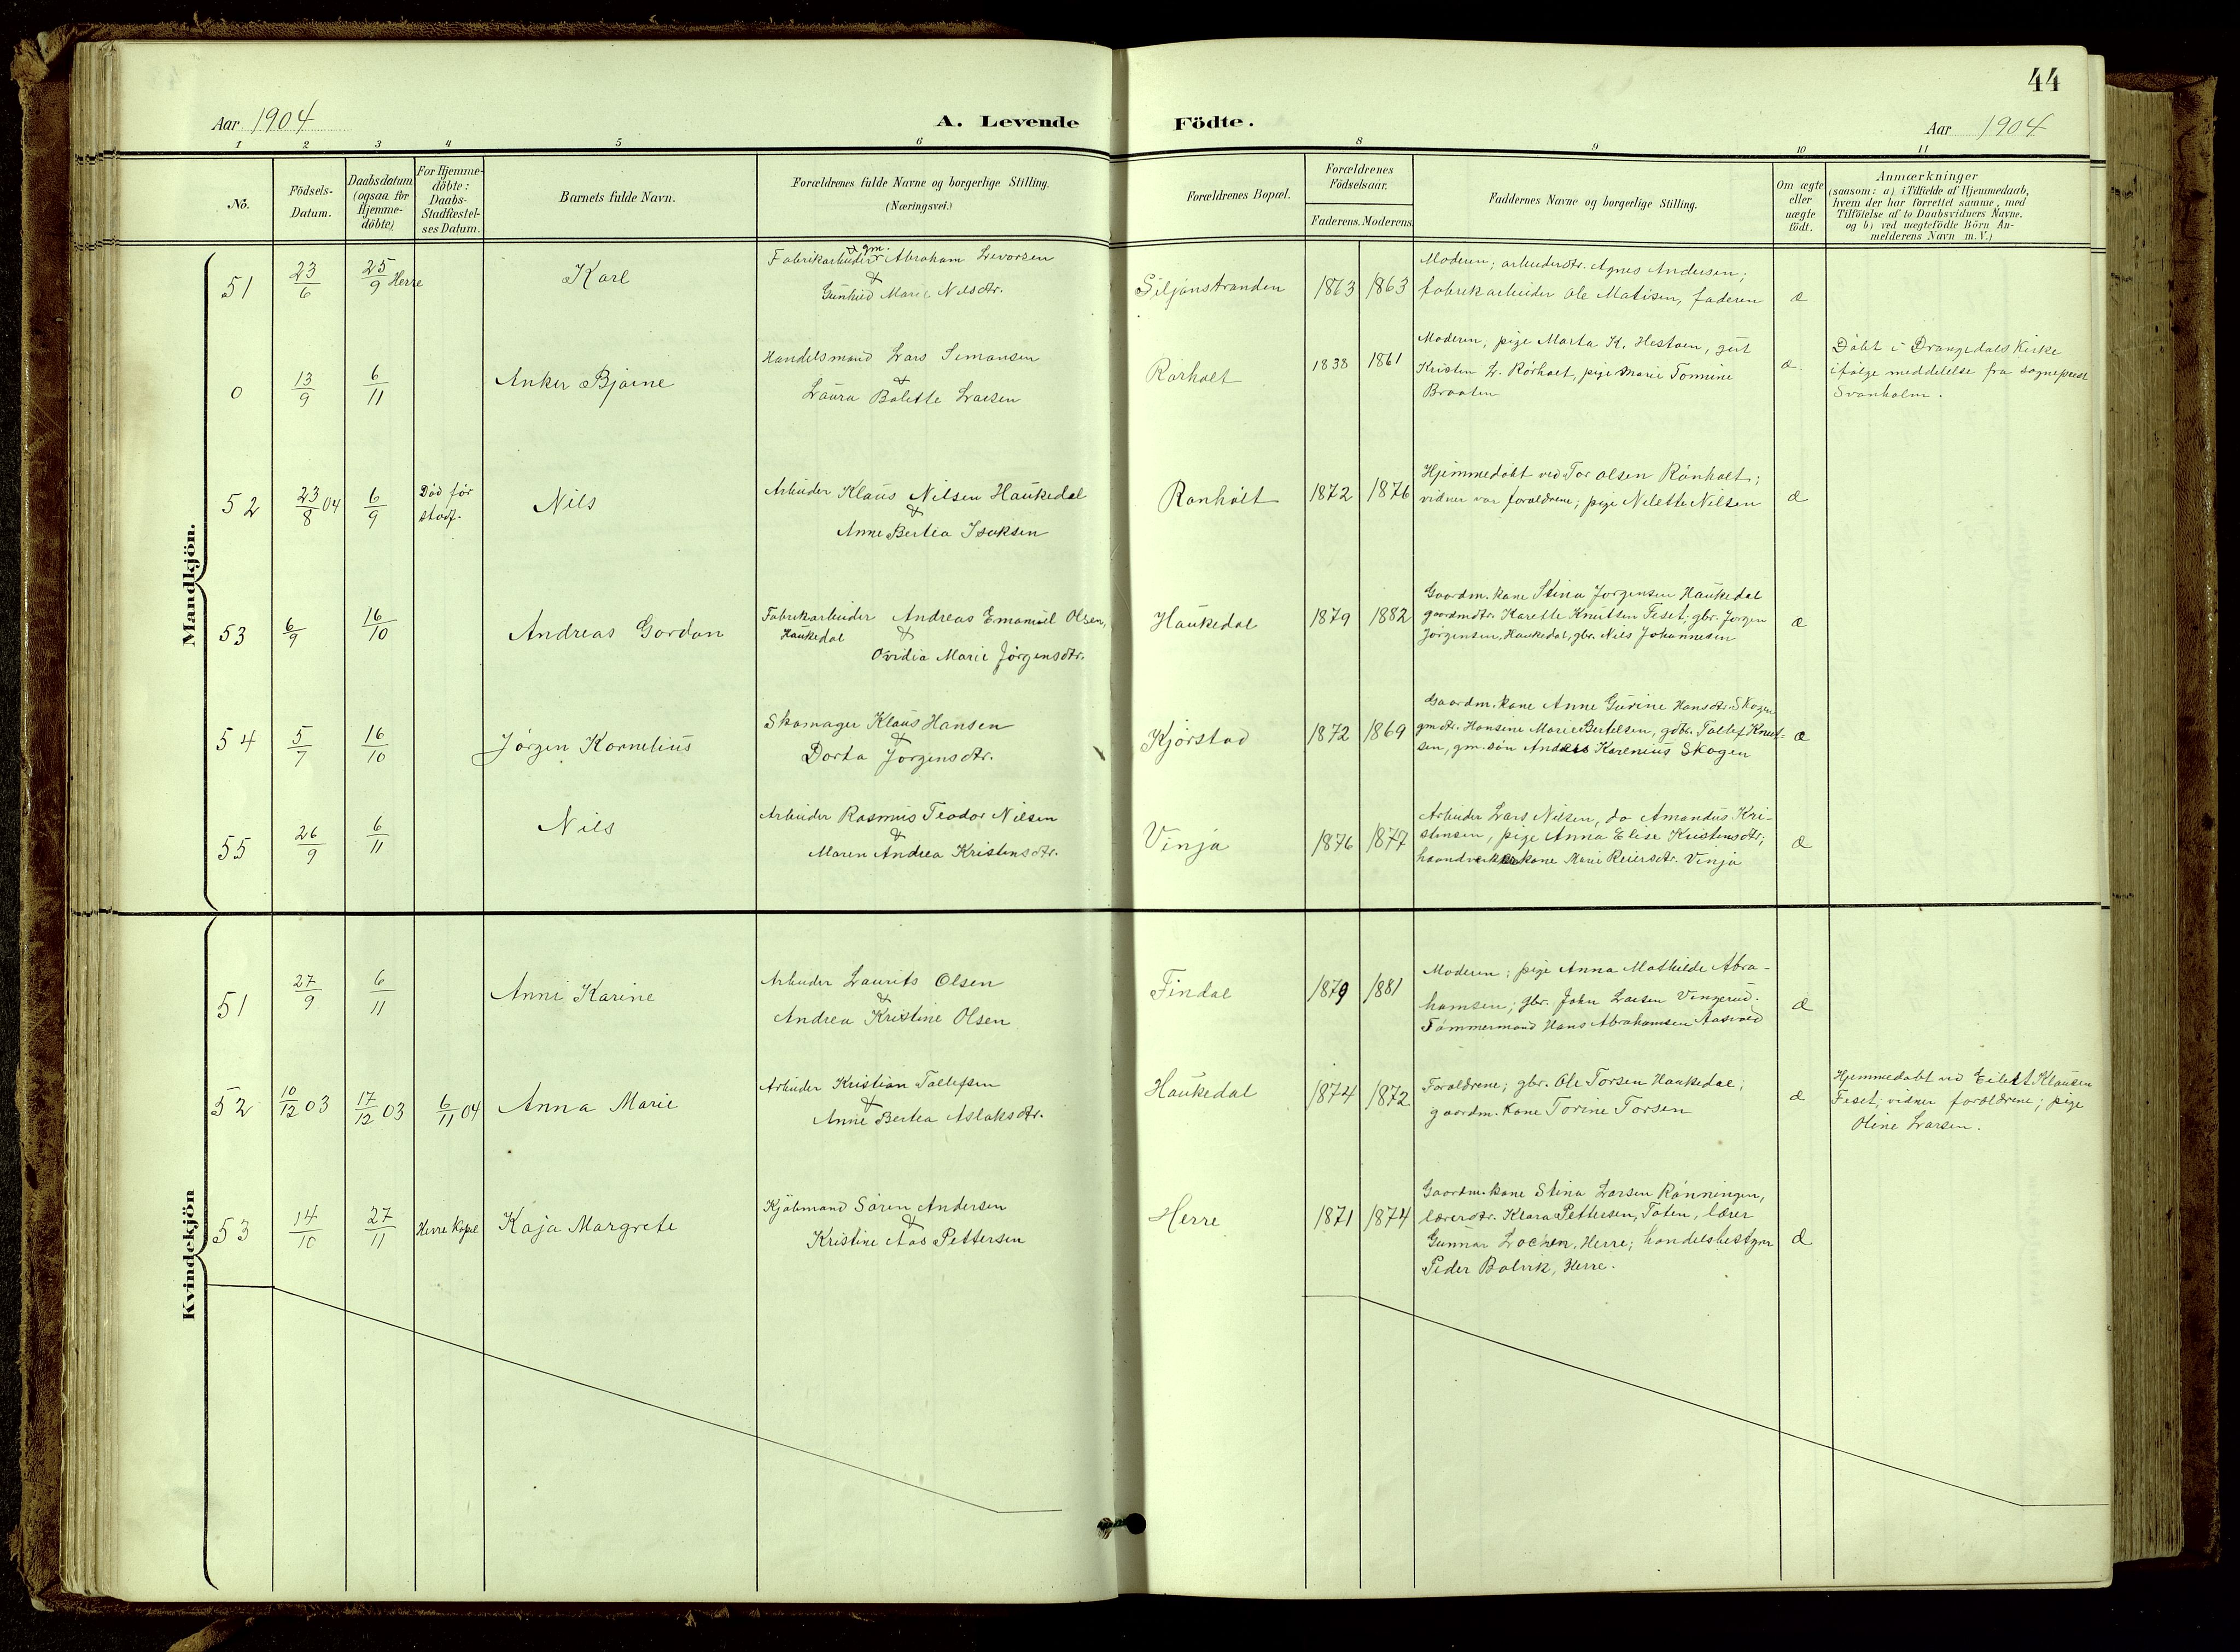 44
Aar 1904
A. Levende
Födte.
Aar 1904
1 2 3 4 5 6 8 9 10 11
No.
Födsels-
Datum.
Daabsdatum
(ogsaa for
Hjemme-
döbte)
For Hjemme-
döbte:
Daabs-
Stadfæstel-
ses Datum.
Barnets fulde Navn.
Forældrenes fulde Navne og borgerlige Stilling.
(Næringsvei.)
Forældrenes Bopæl.
Forældrenes
Födselsaar.
Faderens. Moderens
Faddernes Navne og borgerlige Stilling.
Om ægte
eller
uægte
födt.
Anmærkninger
(saasom: a) i Tilfælde af Hjemmedaab,
hvem der har forrettet samme, med
Tilföielse af to Daabsvidners Navne.
og b) ved uægtefödte Börn An-
melderens Navn m. V.)
Mandkjön.
51 23/6 25/9 Herre Karl
Fabrikarbeider & gm. Abraham Levorsen
&
Gunhild Marie Nilsdtr.
Siljanstranden 1863 1863
Moderen; arbeiderdtr. Agnes Andersen;
fabrikarbeider Ole Matisen, faderen
æ
0 13/9 6/11 Anker Bjarne
Handelsmand Lars Simonsen
&
Laura Bolette Larsen
Rörholt 1838 1861
Moderen, pige Marta K. Hestaen, gut
Kristen L. Rörholt, pige Marie Tomine
Braaten
æ.
Döbt i Drangedals Kirke
ifölge meddelelse fra sogneprest
Svanholm.
52 23/8 04 6/9
Död för
stadf.
Nils
Arbeider Klaus Nilsen Haukedal
&
Anne Bertea Isaksen
Rönholt 1872 1876
Hjemmedöbt ved Tor Olsen Rönholt;
vidner var forældrene; pige Nilette Nilsen
æ
53 6/9 16/10 Andreas Gordon
Fabrikarbeider Andreas Emanuel Olsen,
Haukedal &
Ovidia Marie Jörgensdtr.
Haukedal 1879 1882
Gaardm. kone Stina Jörgensen Haukedal
gaardmdtr. Karette Knutsen Feset. gbr. Jörgen
Jörgensen, Haukedal, gbr. Nils Johannesen
æ
54 5/7 16/10 Jörgen Kornelius
Skomager Klaus Hansen
&
Dorta Jörgensdtr.
Kjörstad 1872 1869
Gaardm. kone Anne Gurine Hansdtr. Skogen
gmdtr. Hansine Marie Bertelsen, gdbr. Tollef Knut-
sen, gm. sön Anders Karenius Skogen
æ
55 26/9 6/11 Nils
Arbeider Rasmus Teodor Nilsen
&
Maren Andrea Kristensdtr.
Vinja 1876 1877
Arbeider Lars Nilsen, do Amandus Kri-
stensen, pige Anna Elise Kristensdtr;
haandverkerkone Marie Reiersdtr. Vinja
æ
Kvindekjön
51 27/9 6/11 Anni Karine
Arbeider Laurits Olsen
&
Andrea Kristine Olsen
Findal 1879 1881
Moderen; pige Anna Mathilde Abra-
hamsen; gbr. John Larsen Vingerud.
Tömmermand Hans Abrahamsen Aasvald
æ
52 10/12 03 17/12 03 6/11 04 Anna Marie
Arbeider Kristian Tollefsen
&
Anne Bertea Aslaksdtr.
Haukedal 1874 1872
Forældrene; gbr. Ole Torsen Haukedal;
gaardm. kone Torine Torsen
æ
Hjemmedöbt ved Eilert Klausen
Feset; vidner forældrene; pige
Oline Larsen.
53 14/10 27/11 Herre Kapel Kaja Margrete
Kjöbmand Sören Andersen
&
Kristine Aas Pettersen
Herre 1871 1874
Gaardm.kone Stina Larsen Rönningen,
lærerdtr. Klara Pettersen, Toten, lærer
Gunnar Lochen, Herre; handelsbestyrer
Peder Bolvik, Herre.
æ